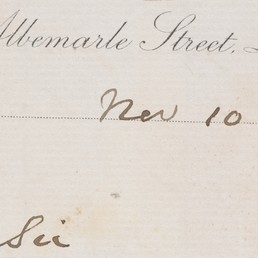 Albemarle Street,
Nov 10
Sir